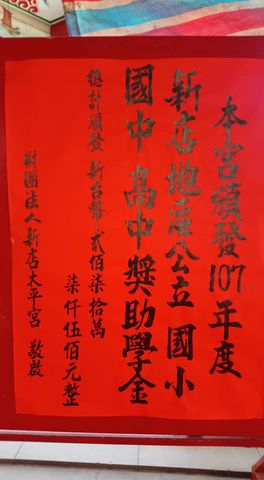 本宮頒發107年度
新店地區公立國小
國中高中獎助學金
總計頒發新台幣貳佰柒拾萬
柒仟伍佰元整
財團法人新店太平宮 敬啟